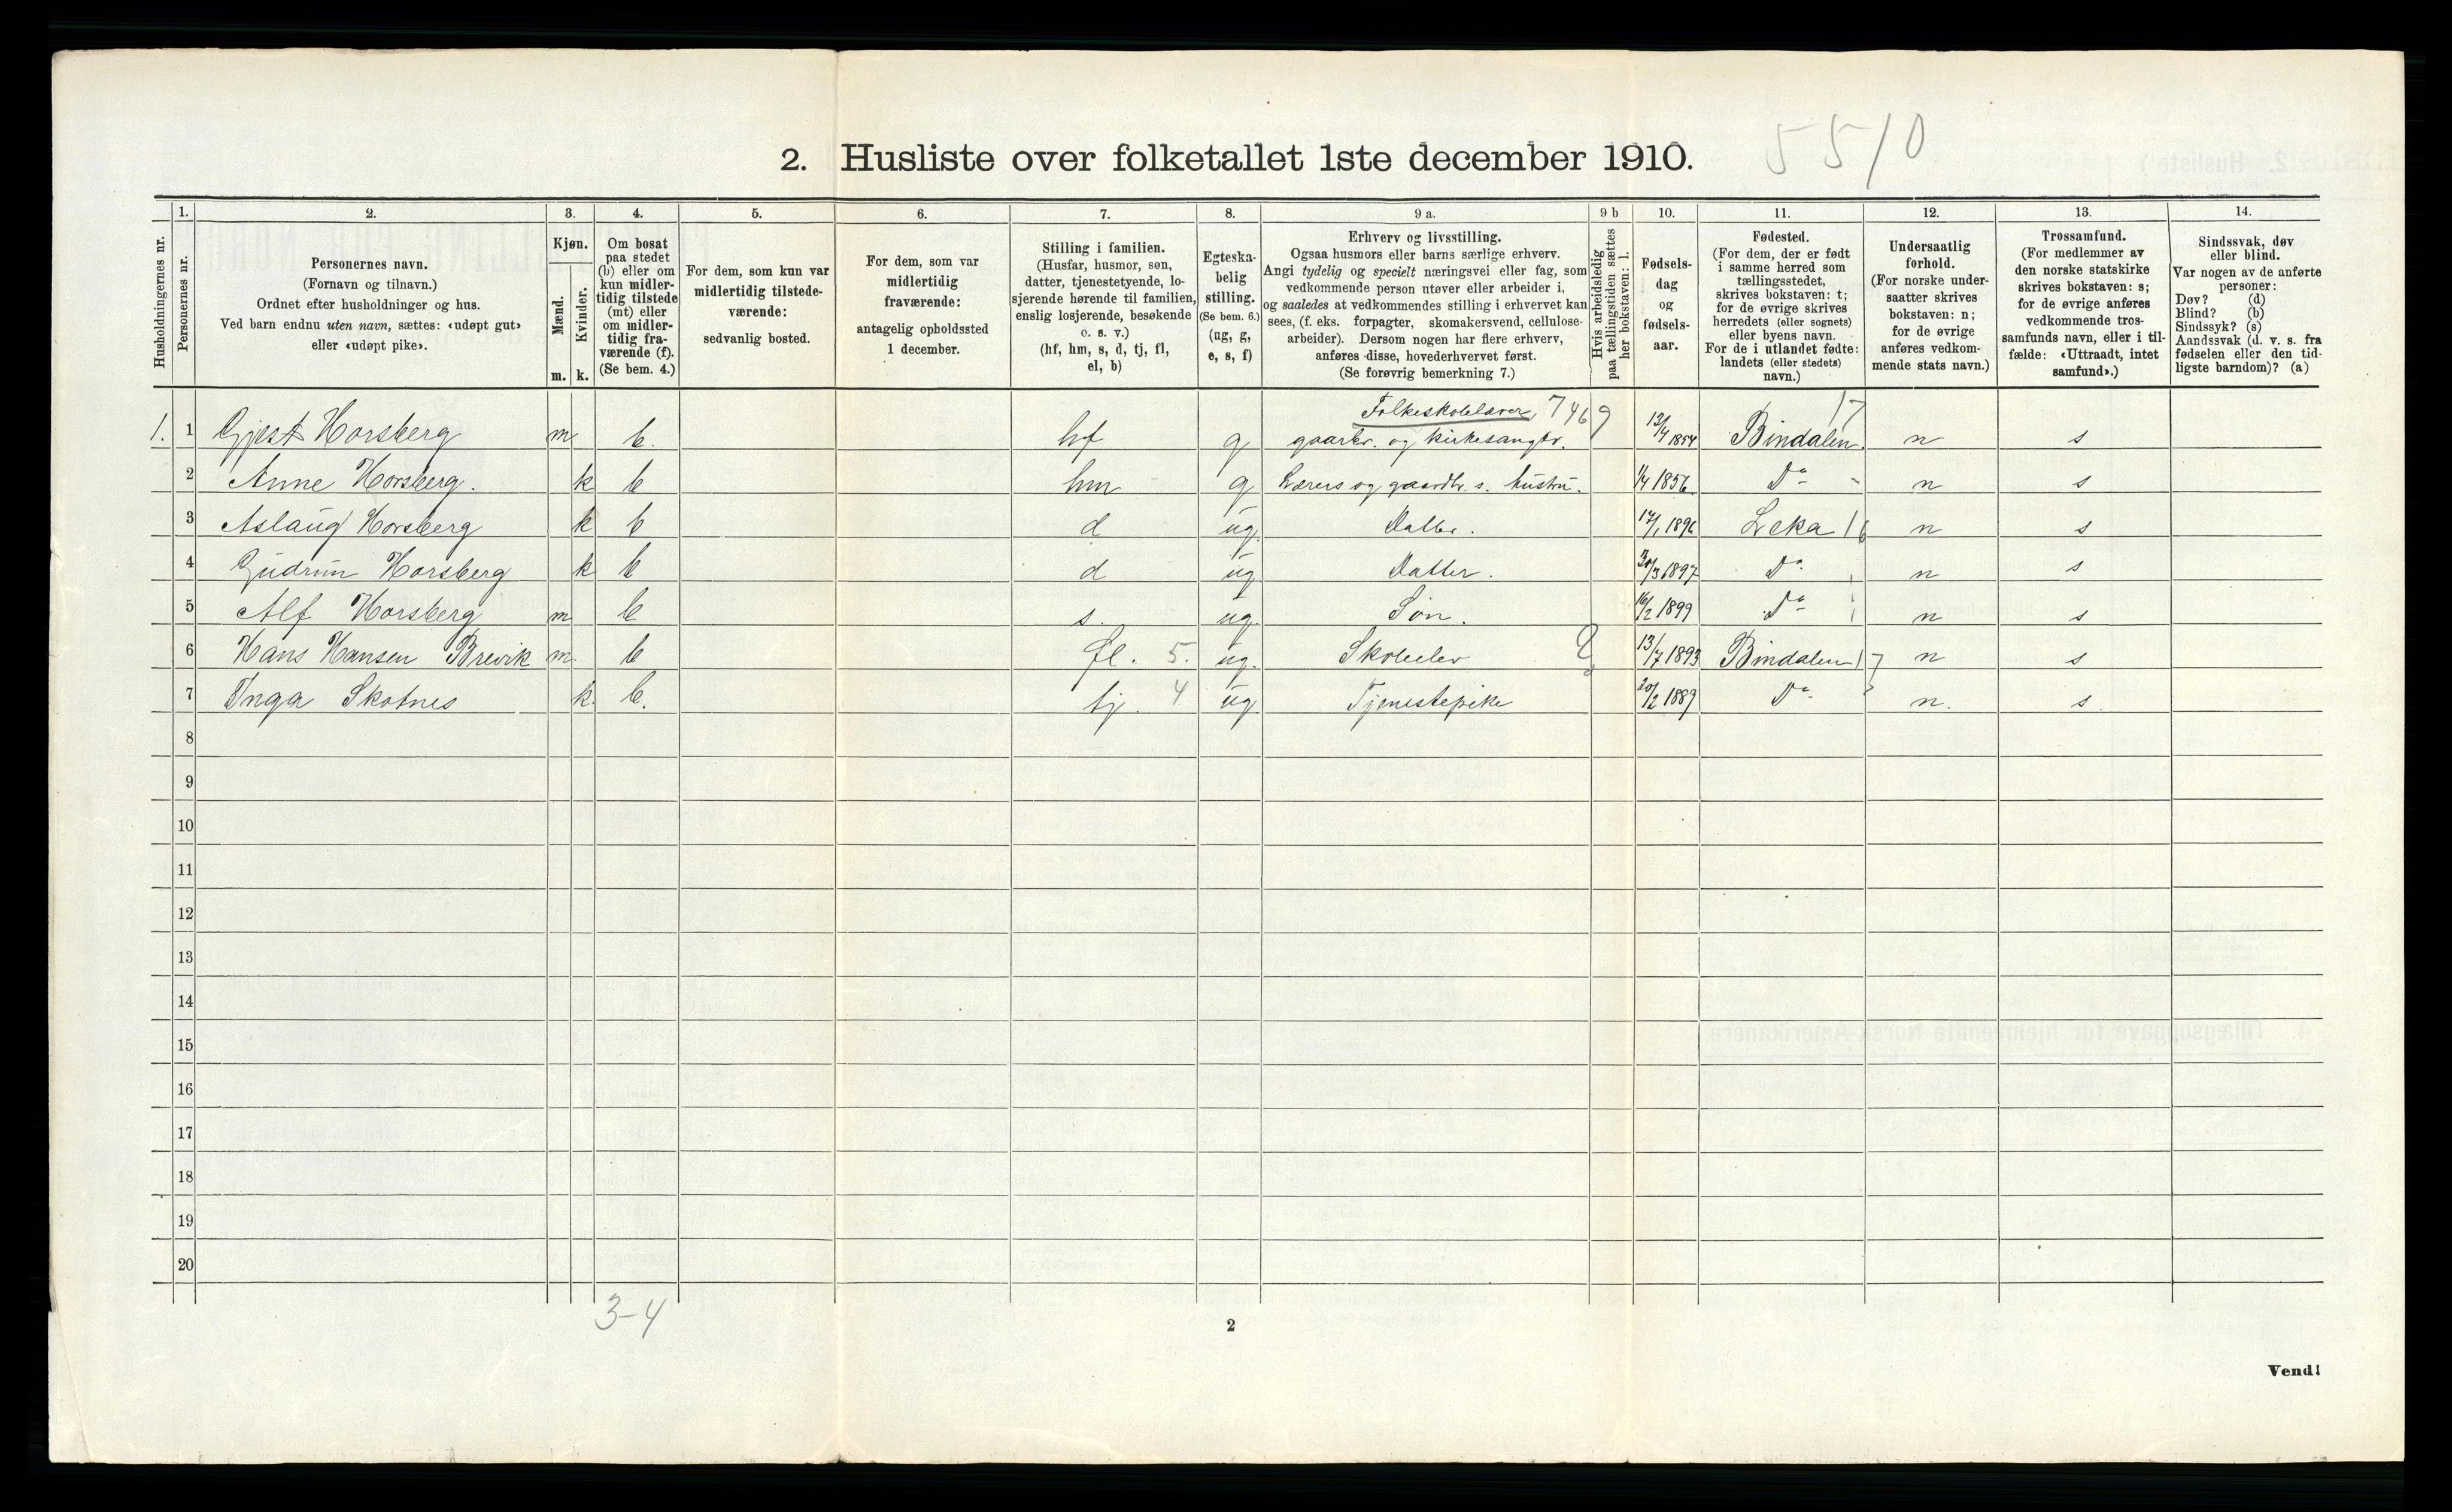 5510
2. Husliste over folketallet 1ste december 1910.
Husholdningernes nr.
1.
Personernes nr.
2.
Personernes navn.
(Fornavn og tilnavn.)
Ordnet efter husholdninger og hus.
Ved barn endnu uten navn, sættes: «udøpt gut»
eller «udøpt pike».
3.
Kjøn.
Mænd.
Kvinder.
m. k.
4.
Om bosat
paa stedet
(b) eller om
kun midler-
tidig tilstede
(mt) eller
om midler-
tidig fra-
værende (f).
(Se bem. 4.)
5.
For dem, som kun var
midlertidig tilstede-
værende:
sedvanlig bosted.
6.
For dem, som var
midlertidig
fraværende:
antagelig opholdssted
1 december.
7.
Stilling i familien.
(Husfar, husmor, søn,
datter, tjenestetyende, lo-
sjerende hørende til familien,
enslig losjerende, besøkende
o. s. v.)
(hf, hm, s, d, tj, fl,
el, b)
8.
Egteska-
belig
stilling.
(Se bem. 6.)
(ug, g,
e, s, f)
9 a.
Erhverv og livsstilling.
Ogsaa husmors eller barns særlige erhverv.
Angi tydelig og specielt næringsvei eller fag, som
vedkommende person utøver eller arbeider i,
og saaledes at vedkommendes stilling i erhvervet kan
sees, (f. eks. forpagter, skomakersvend, cellulose-
arbeider). Dersom nogen har flere erhverv,
anføres disse, hovederhvervet først.
(Se forøvrig bemerkning 7.)
9 b
Hvis arbeidsledig
paa tællingstiden sættes
her bokstaven: l.
10.
Fødsels-
dag
og
fødsels-
aar.
11.
Fødested.
(For dem, der er født
i samme herred som
tællingsstedet,
skrives bokstaven: t;
for de øvrige skrives
herredets (eller sognets)
eller byens navn.
For de i utlandet fødte:
landets (eller stedets)
navn.)
12.
Undersaatlig
forhold.
(For norske under-
saatter skrives
bokstaven: n;
for de øvrige
anføres vedkom-
mende stats navn.)
13.
Trossamfund.
(For medlemmer av
den norske statskirke
skrives bokstaven: s;
for de øvrige anføres
vedkommende tros-
samfunds navn, eller i til-
fælde: «Uttraadt, intet
samfund».)
14.
Sindssvak, døv
eller blind.
Var nogen av de anførte
personer:
Døv? (d)
Blind? (b)
Sindssyk? (s)
Aandssvak (d. v. s. fra
fødselen eller den tid-
ligste barndom)? (a)
Folkeskolelærer, 7469 17
1. 1 Gjest Horsberg m b. hf g gaarbr. og kirkesanger. 1854 Bindalen n s
2 Anne Horsberg. k b hm g Lærers og gaardbr. s. hustru. 1/4 1856 Do n s
3 Aslaug Horsberg k b d ug. Datter. 17/1 1896 Leka 16 n s
4 Gudrun Horsberg k b d ug Datter. 30/3 1897 Do n s
5 Alf Horsberg m b s. ug. Søn. 16/2 1899 Do n s
6 Hans Hansen Brevik m b fl. 5. ug. Skoleelev 13/7 1893 Bindalen 17 n s
7 Inga Skotnes k. b. tj. 4 ug Tjenestepike 20/2 1889 Do n. s
8
9
10
11
12
13
14
15
16
17
18
19
20
3-4
2
Vend!